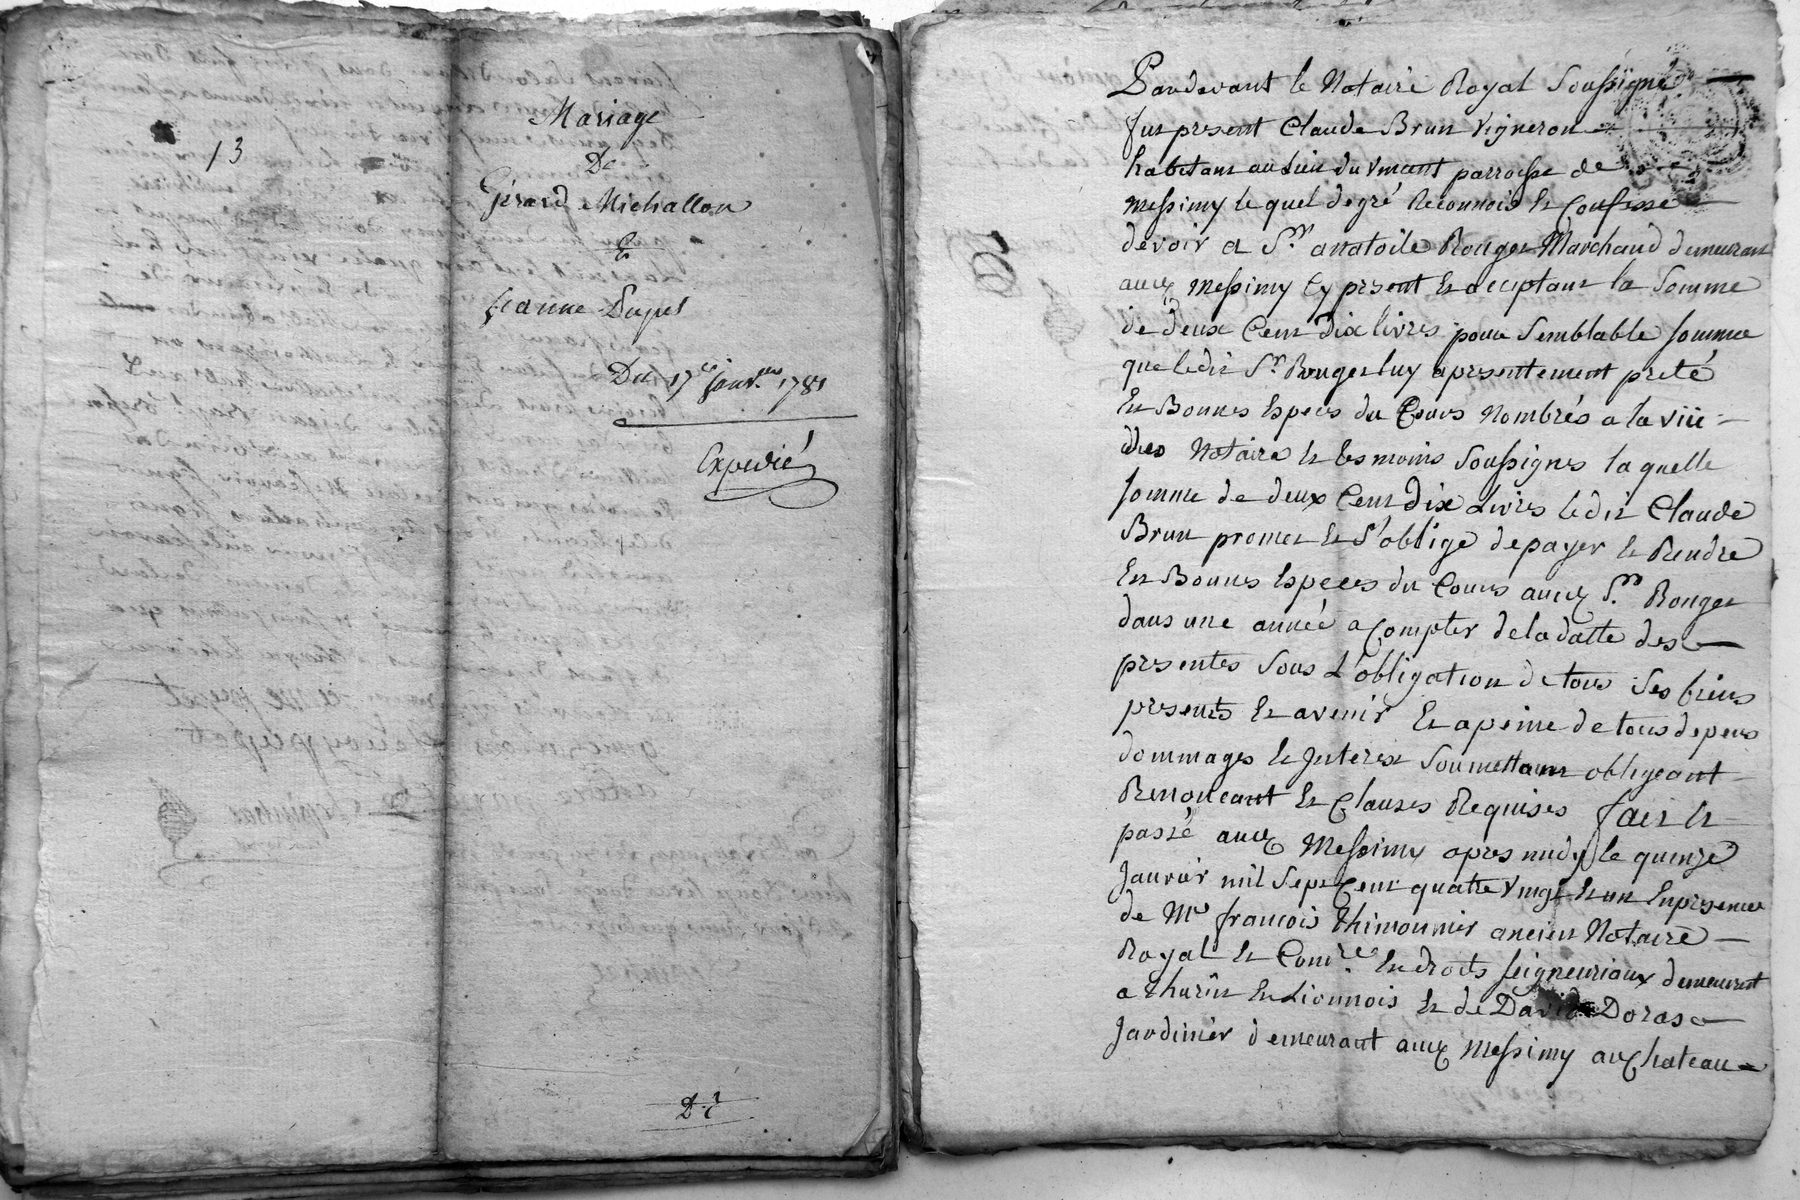 13
Mariage
De
Gérard Michallon
Et
Jeanne Pupet
Du 17e janvier 1781
Expedié
Pardevant le Notaire Royal Soussigné
fut present Claude Brun Vigneron
habitant au Lieu du Vincent parroisse de
Messimy le quel de gré Reconnois et Confesse
devoir a Sr. anatoile Rouget Marchand demeurant
aud Messimy Cy present et acceptant la Somme
de deux Cent dix livres pour Semblable somme
que ledit Sr. Rouget luy a presentement preté
En Bonnes Especes du Cours Nombrés a la vüe
des Notaire et temoins Soussignes la quelle
somme de deux Cent Dix Livres ledit Claude
Brun promet et S'oblige de payer et Rendre
En Bonnes Especes du Cours aud Sr. Rouget
dans une année a Compter de la datte des
presentes Sous L'obligation de tous Ses biens
presents et avenir Et a peine de tous depens
dommages et Interest Soumettant obligeant
Renonceant et Clauses Requises fait et
passé aud Messimy apres midy le quinze
Janvier mil Sept Cent quatre vingt et un En presence
de Me francois Thimonnier ancien Notaire
Royal et Comre. En droits seigneuriaux demeurant
a thurin En Lionnois et de David Doras
Jardinier demeurant aud Messimy au Chateau